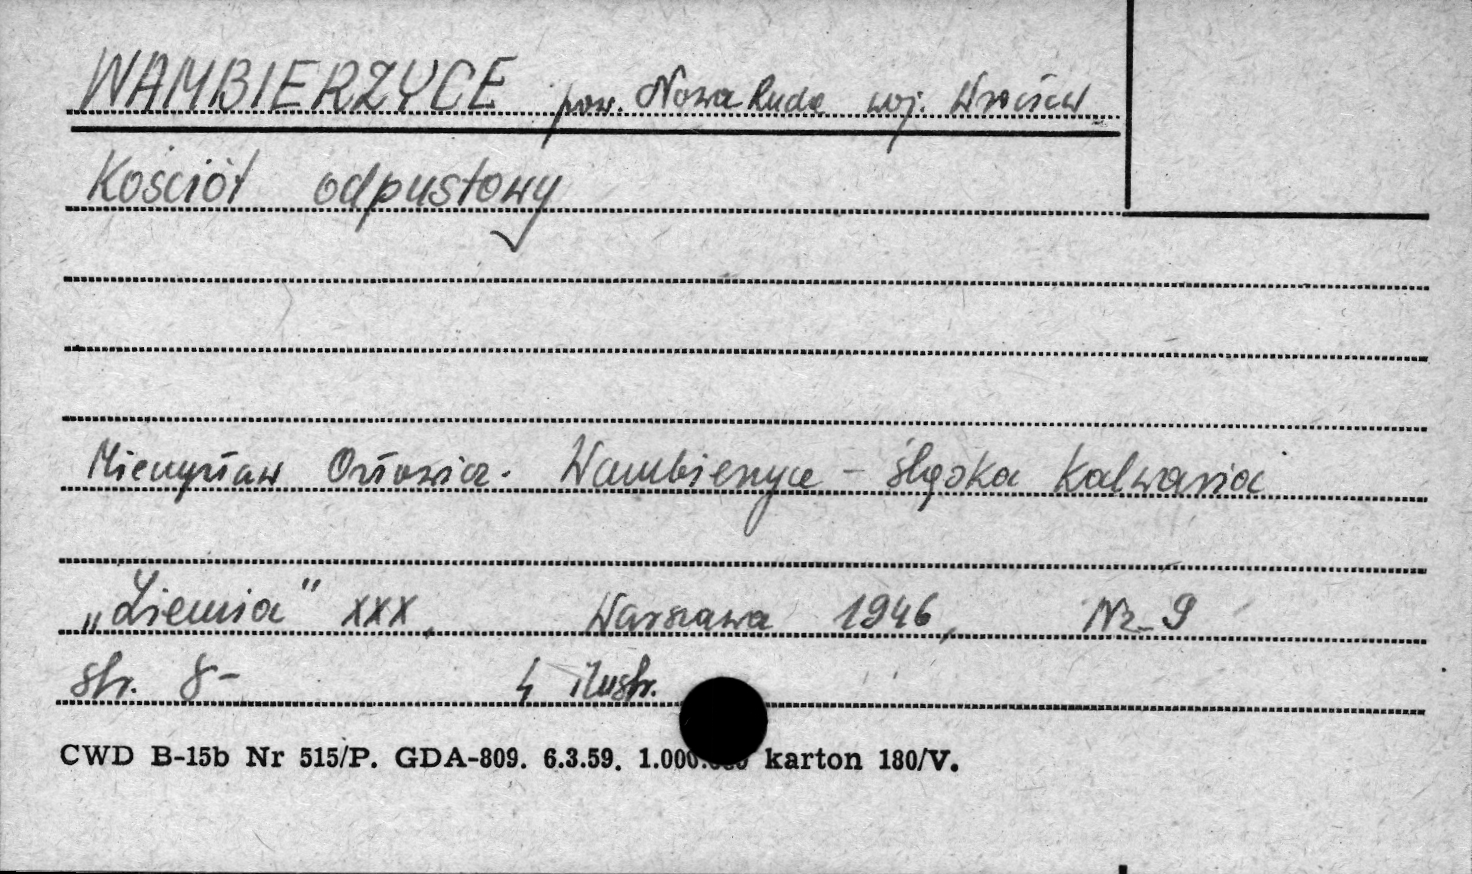 WAMBIERZYCE pow. Nowa Ruda woj. Wrocław
Kościół odpustowy
Mieczysław Orłowicz. Wambierzyce – śląska Kalwaria
„Ziemia” XXX, Warszawa 1946, Nr 9
str. 8- 4 ilustr.
CWD B-15b Nr 515/P. GDA-809. 6.3.59. karton 180/V.